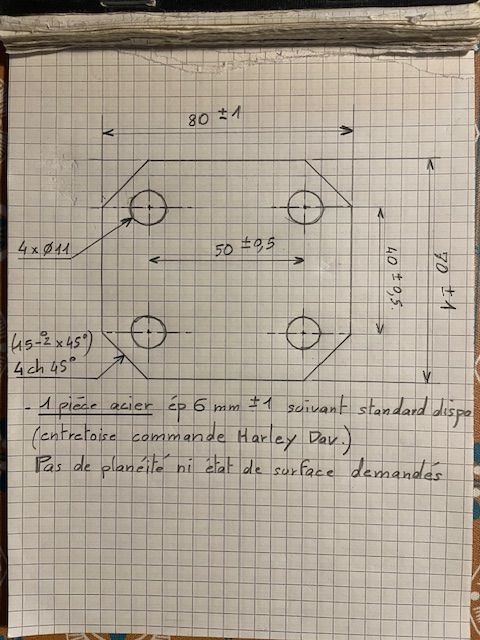 80 ±1
4 x Ø11
50 ±0,5
40 ±0,5.
70 ±1
(15-⁰₂ x 45°)
4 ch 45°
- 1 pièce acier ép 6 mm ±1 suivant standard dispo
(entretoise commande Harley Dav.)
Pas de planéité ni état de surface demandés